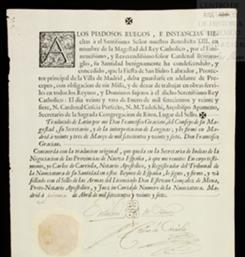 A LOS PIADOSOS RUEGOS, E INSTANCIAS HE-
chas á el Santissimo Señor nuestro Benedicto XIII. en
nombre de la Magestad del Rey Catholico, por el Emi-
nentissimo, y Reverendissimo Señor Cardenal
su Santidad benignamente ha condescendido, y
concedido, que la Fiesta de San Isidro Labrador, Patron
principal de la Villa de Madrid, deba guardarse en adelante de Pre-
cepto, con obligacion de oir Missa, y de cessar de trabajar en obras servi-
les en todos los Reynos, y Dominios sujetos á el dicho Santissimo Rey
Catholico: El dia veinte y uno de Enero de mil setecientos y veinte y
siete, N. Cardenal Coscia Prefecto, N. M. Tedeschi, Arzobispo Apameno,
Secretario de la Sagrada Congregacion de Ritos, Lugar del Sello
Traducido de Latin por mi Don Francisco Gracian, del Consejo de su Ma-
gestad, su Secretario, y de la interpretacion de Lenguas, y lo firmé en Ma-
drid á veinte y tres de Março de mil setecientos y veinte y siete. Don Francisco
Gracian.
Concuerda con la traducion original, que queda en la Secretaria de Indias de la
Negociacion de las Provincias de Nueva España, á que me remito. En cuyo testi-
monio, yo Carlos de Garrida, Notario Apostolico, y Regentador del Tribunal
de la Nunciatura de su Santidad en estos Reynos de España, lo signo, y firmo, y vá
sellado con el Sello de las Armas del Licenciado Don Estevan Gonzalez de Mena,
Proto-Notario Apostolico, y Juez in Curia de Numero de la Nunciatura. Ma-
drid á Abril de mil setecientos y veinte, y siete.